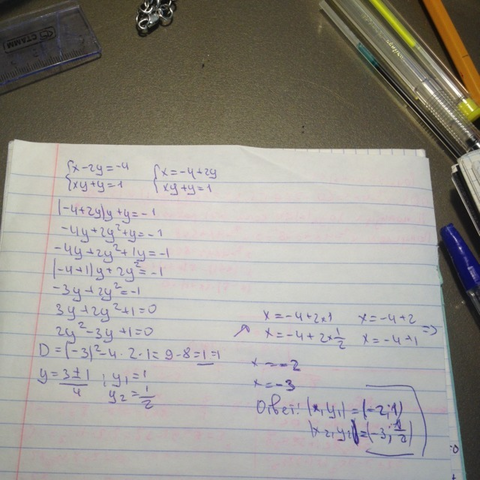 СТАММ
{x-2y=-4 {x=-4+2y
{xy+y=1 {xy+y=1
(-4+2y)y+y=-1
-4y+2y²+y=-1
-4y+2y²+1y=-1
(-4+1)y+2y²=-1
-3y+2y²=-1
3y+2y²+1=0
2y²-3y+1=0
D=(-3)²-4·2·1=9-8=1=1
y=3±1/4 ; y₁=1
y₂=1/2
x=-4+2*1 x=-4+2
x=-4+2*1/2 x=-4+1 =>
x=-2
x=-3
Ответ: (x,y₁)=(-2;1)
(x₂,y₁)=(-3;1/2)